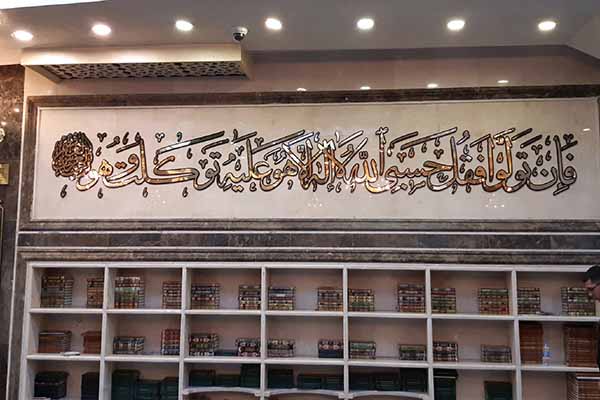 فَإِن تَوَلَّوْا فَقُلْ حَسْبِيَ اللَّهُ لَا إِلَٰهَ إِلَّا هُوَ عَلَيْهِ تَوَكَّلْتُ وَهُوَ